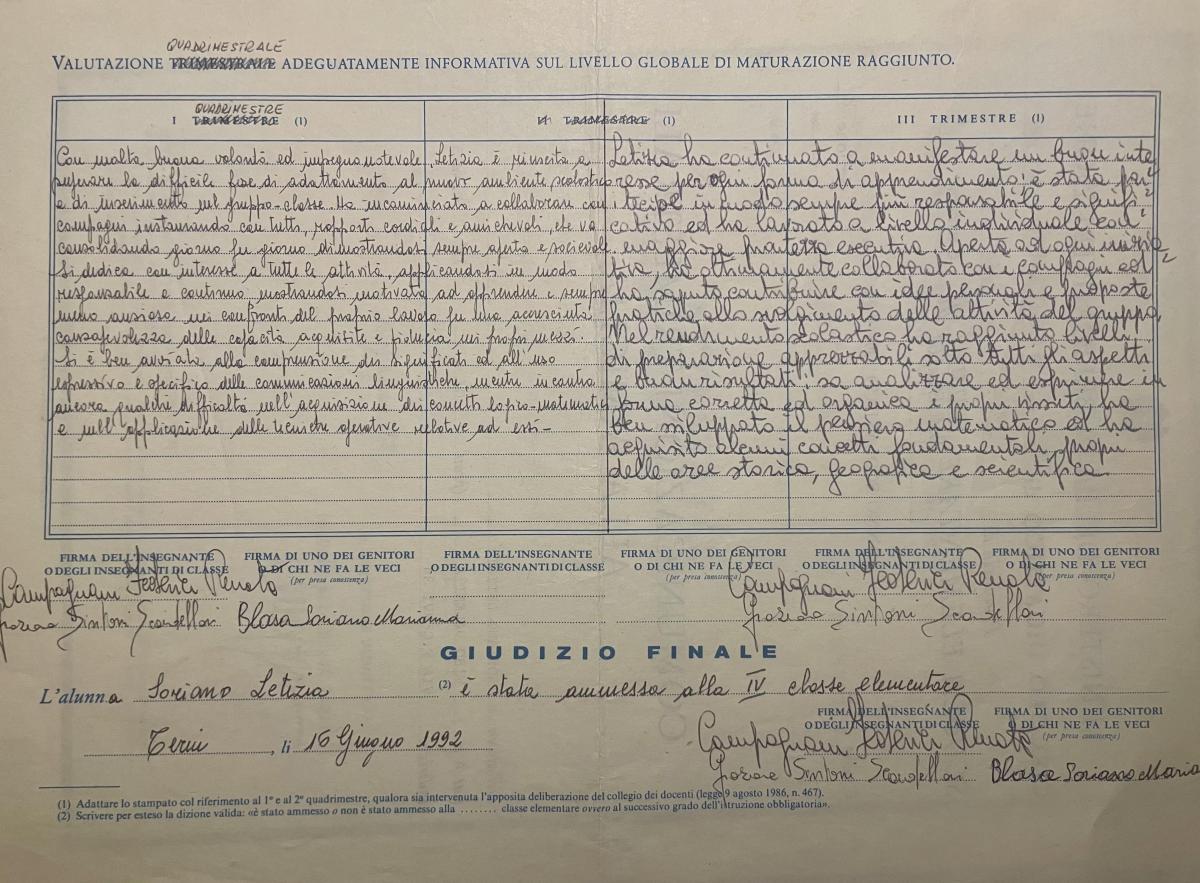 QUADRIMESTRALE
VALUTAZIONE TRIMESTRALE ADEGUATAMENTE INFORMATIVA SUL LIVELLO GLOBALE DI MATURAZIONE RAGGIUNTO.
QUADRIMESTRE
I TRIMESTRE (1)
II TRIMESTRE (1)
III TRIMESTRE (1)
Con molta buona volontà ed impegno notevole, Letizia è riuscita a
superare la difficile fase di adattamento al nuovo ambiente scolastico
e di inserimento nel gruppo-classe. Ha incominciato a collaborare con i
compagni instaurando con tutti, rapporti cordiali e amichevoli, che va
consolidando giorno per giorno dimostrandosi sempre aperta e socievole.
Si dedica con interesse a tutte le attività, applicandosi in modo
responsabile e continuo, mostrandosi motivata ad apprendere e sempre
meno ansiosa nei confronti del proprio lavoro per una accresciuta
consapevolezza delle capacità acquisite e fiducia nei propri mezzi.
Si è ben avviata alla comprensione dei significati ed all'uso
espressivo e specifico delle comunicazioni linguistiche, mentre incontra
ancora qualche difficoltà nell'acquisizione dei concetti logico-matematici
e nell'applicazione delle tecniche operative relative ad essi-
Letizia ha continuato a manifestare un buon inte
resse per ogni forma di apprendimento: è stata par
tecipe in modo sempre più responsabile e signifi
cativo ed ha lavorato a livello individuale con
maggiore prontezza esecutiva. Aperta ad ogni inizia
tiva, ha ottimamente collaborato con i compagni ed
ha saputo contribuire con idee personali e proposte
pratiche allo svolgimento delle attività del gruppo.
Nel rendimento scolastico ha raggiunto livelli
di preparazione apprezzabili sotto tutti gli aspetti
e buoni risultati: sa analizzare ed esprimere in
forma corretta ed organica i propri vissuti, ha
ben sviluppato il pensiero matematico ed ha
acquisito alcuni concetti fondamentali, propri
delle aree storica, geografica e scientifica.
FIRMA DELL'INSEGNANTE
O DEGLI INSEGNANTI DI CLASSE
FIRMA DI UNO DEI GENITORI
O DI CHI NE FA LE VECI
(per presa conoscenza)
FIRMA DELL'INSEGNANTE
O DEGLI INSEGNANTI DI CLASSE
FIRMA DI UNO DEI GENITORI
O DI CHI NE FA LE VECI
(per presa conoscenza)
FIRMA DELL'INSEGNANTE
O DEGLI INSEGNANTI DI CLASSE
FIRMA DI UNO DEI GENITORI
O DI CHI NE FA LE VECI
(per presa conoscenza)
Campagnani Federici Renata
Sintoni Scardelloni Blasa Soriano Marianna
Campagnani Federici Renata
Sintoni Scardelloni
GIUDIZIO FINALE
L'alunna Soriano Letizia (2) è stata ammessa alla IV classe elementare
Terni, li 16 Giugno 1992
FIRMA DELL'INSEGNANTE
O DEGLI INSEGNANTI DI CLASSE
FIRMA DI UNO DEI GENITORI
O DI CHI NE FA LE VECI
(per presa conoscenza)
Campagnani Federici Renata
Sintoni Scardelloni Blasa Soriano Maria
(1) Adattare lo stampato col riferimento al 1º e al 2º quadrimestre, qualora sia intervenuta l'apposita deliberazione del collegio dei docenti (legge 9 agosto 1986, n. 467).
(2) Scrivere per esteso la dizione valida: «è stato ammesso o non è stato ammesso alla ........ classe elementare ovvero al successivo grado dell'istruzione obbligatoria».